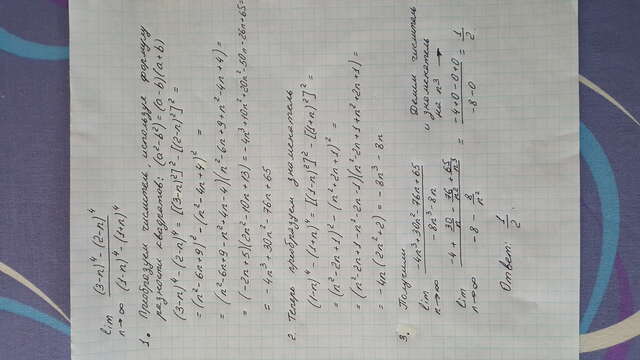 lim n→∞ (3-n)⁴ - (2-n)⁴ / (1-n)⁴ - (1+n)⁴
1. Преобразуем числитель, используя формулу
разности квадратов: (a²-b²) = (a-b)(a+b)
(3-n)⁴ - (2-n)⁴ = [(3-n)²]² - [(2-n)²]² =
= (n²-6n+9)² - (n²-4n+4)² =
= (n²-6n+9-n²+4n-4)(n²-6n+9+n²-4n+4) =
= (-2n+5)(2n²-10n+13) = -4n³+10n²+20n²-50n-26n+65=
= -4n³+30n²-76n+65
2. Теперь преобразуем знаменатель
(1-n)⁴ - (1+n)⁴ = [(1-n)²]² - [(1+n)²]² =
= (n²-2n+1)² - (n²+2n+1)² =
= (n²-2n+1-n²-2n-1)(n²-2n+1+n²+2n+1) =
= -4n(2n²+2) = -8n³-8n
3. Получим
lim n→∞ -4n³+30n²-76n+65 / -8n³-8n
Делим числитель
и знаменатель
на n³ →
lim n→∞ -4 + 30/n - 76/n² + 65/n³ / -8 - 8/n² = -4+0-0+0 / -8-0 = 1/2
Ответ: 1/2